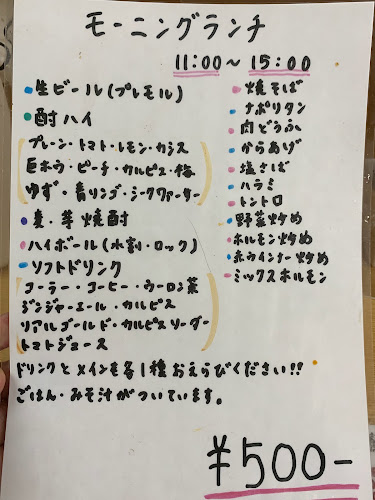 モーニングランチ
11:00～15:00
生ビール(プレモル)
酎ハイ
プレーン・トマト・レモン・カシス
巨ホウ・ピーチ・カルピス・梅
ゆず・青リンゴ・シークワァーサー
麦・芋焼酎
ハイボール(水割・ロック)
ソフトドリンク
コーラー・コーヒー・ウーロン茶
ジンジャーエール・カルピス
リアルゴールド・カルピスソーダー
トマトジュース
焼そば
ナポリタン
肉どうふ
からあげ
塩さば
ハラミ
トントロ
野菜炒め
ホルモン炒め
赤ウインナー炒め
ミックスホルモン
ドリンクとメインを各1種おえらびください!!
ごはん・みそ汁がついています。
¥500-